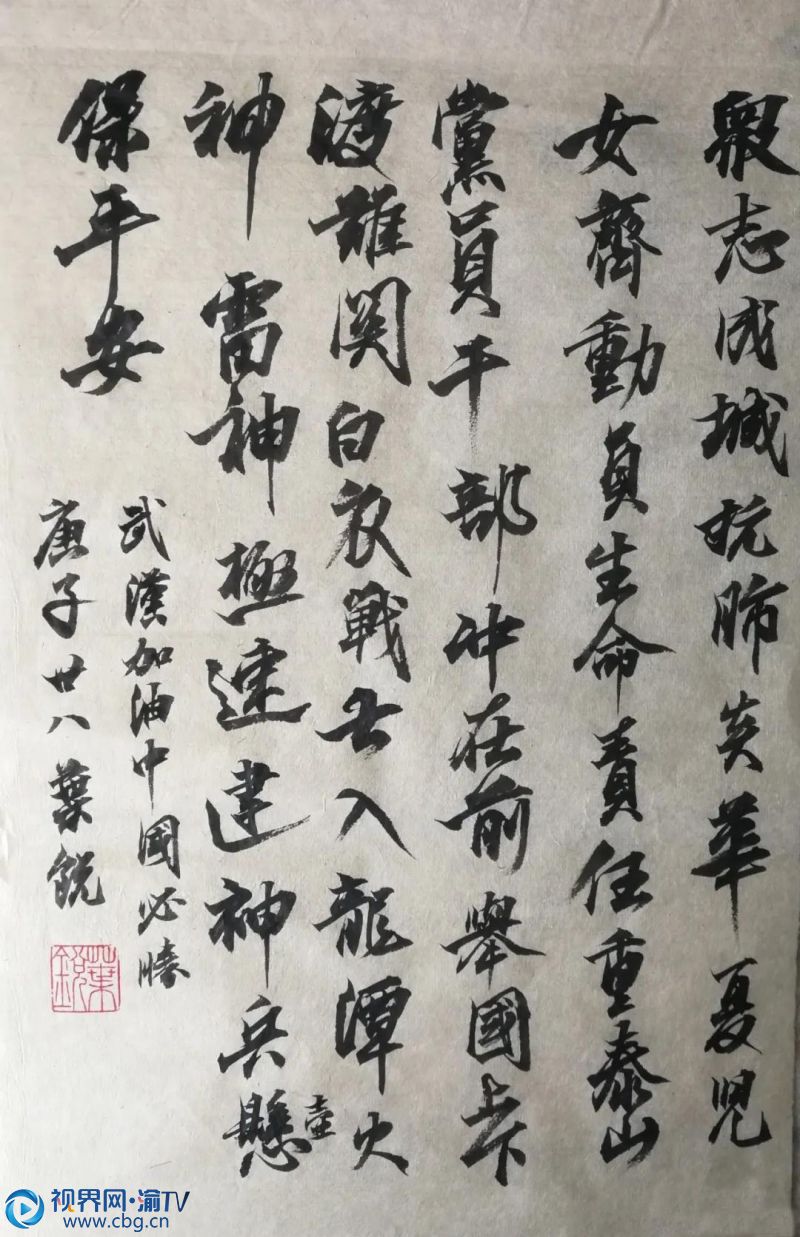 眾志成城抗肺炎華夏児
女齊動員生命責任重泰山
黨員干部冲在前舉國上下
渡難関白衣戰士入龍潭火
神雷神極速建神兵懸壺
保平安
武漢加油中國必勝
庚子廿八葉銳
葉銳
视界网·渝TV
www.cbg.cn